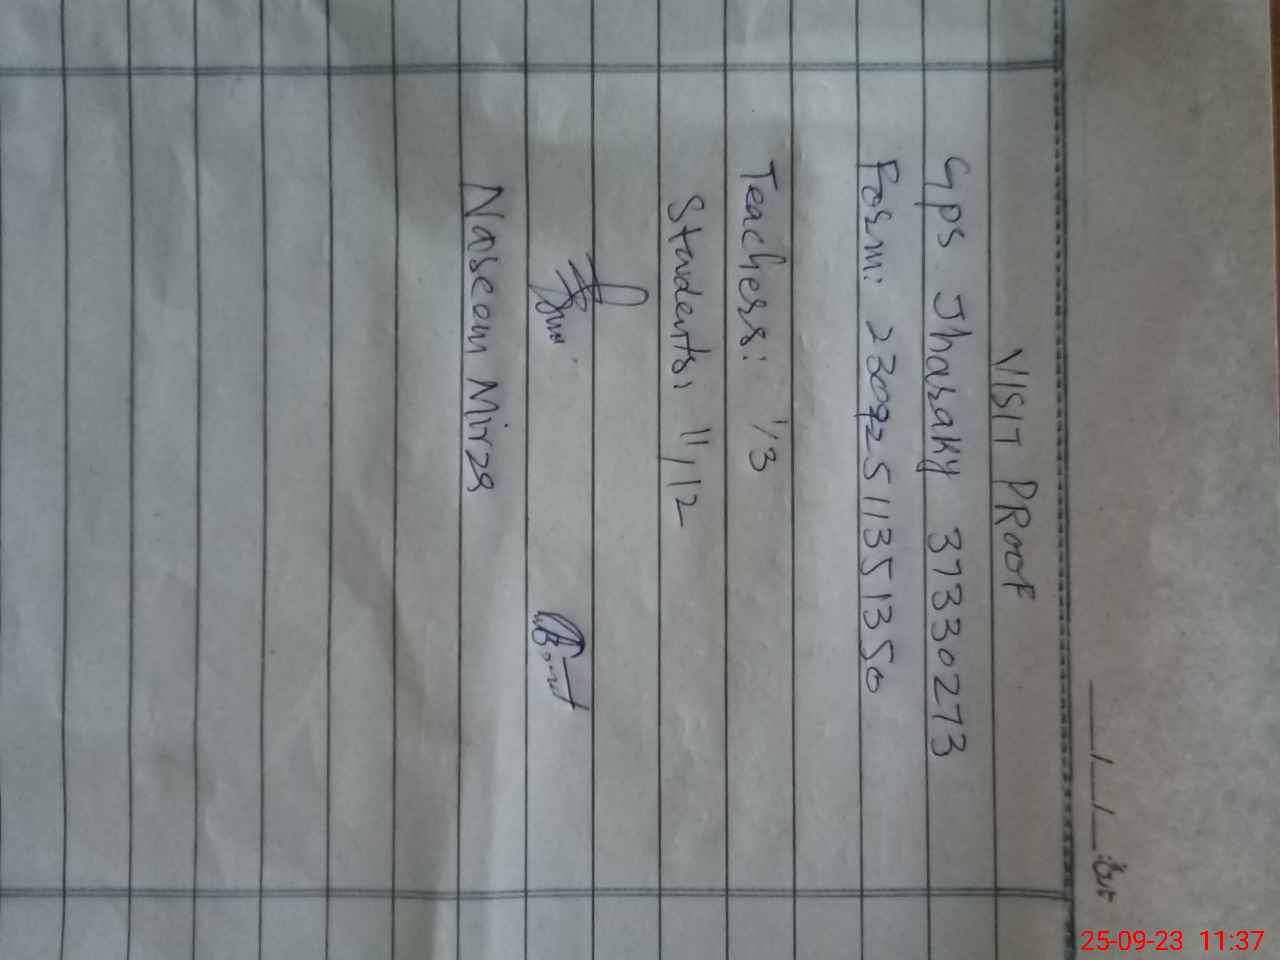 __/__/__ تاریخ
VISIT PROOF
Gps Jharaky 37330273
Form: 23092511351350
Teachers: 1/3
Students: 11/12
Naseem Mirza
25-09-23 11:37